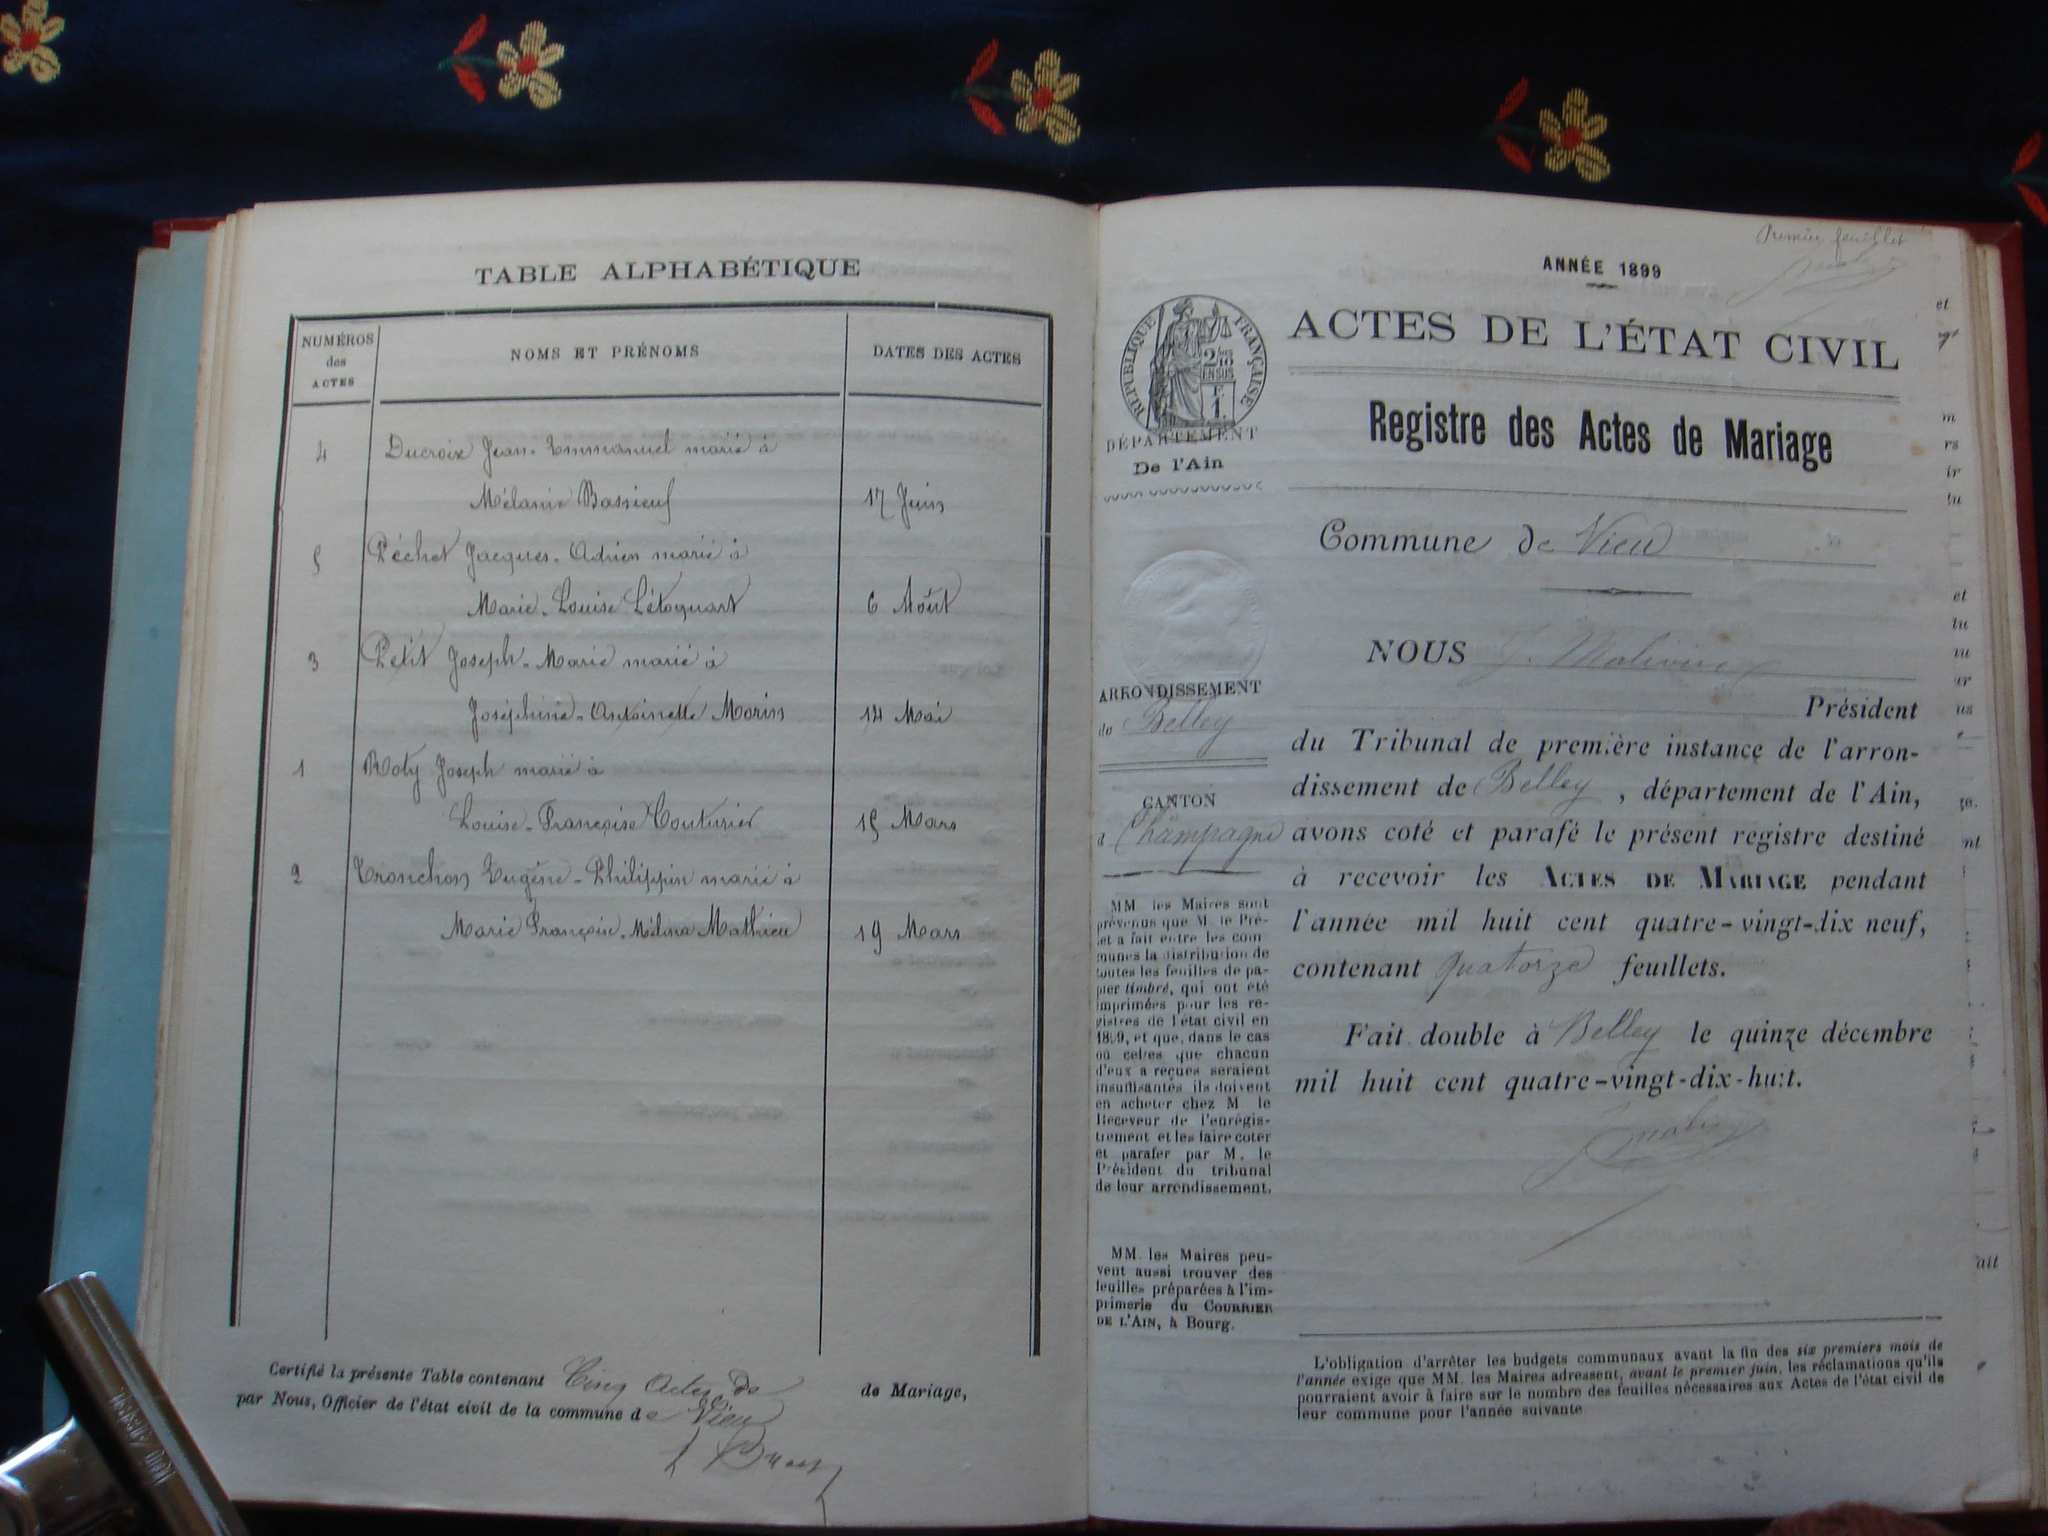 TABLE ALPHABÉTIQUE
NUMÉROS
des
ACTES
NOMS ET PRÉNOMS
DATES DES ACTES
4 Ducroix Jean-Emmanuel marié à
Mélanie 17 Juin
5 Péchet Jacques-Adrien marié à
Marie-Louise Létoquart 6 Août
3 Petit Joseph-Marie marié à
Joséphine-Antoinette Morin 14 Mai
1 Roty Joseph marié à
Louise-Françoise Couturier 15 Mars
2 Tronchon Eugène-Philippin marié à
Marie Françoise-Mélina Mathieu 19 Mars
Certifié la présente Table contenant Cinq Actes de de Mariage,
par Nous, Officier de l'état civil de la commune de Vieu
Premier feuillet
ANNÉE 1899
ACTES DE L'ÉTAT CIVIL
Registre des Actes de Mariage
RÉPUBLIQUE FRANÇAISE
2/10
EN SUS
1 F.
DÉPARTEMENT
De l'Ain
ARRONDISSEMENT
de Belley
CANTON
d Champagne
MM. les Maires sont
prévenus que M. le Pré-
fet a fait entre les com
munes la distribution de
toutes les feuilles de pa-
pier timbré, qui ont été
imprimées pour les re-
gistres de l'état civil en
1899, et que, dans le cas
où celles que chacun
d'eux a reçues seraient
insuffisantes ils doivent
en acheter chez M le
Receveur de l'enrégis-
trement et les faire coter
et parafer par M. le
Président du tribunal
de leur arrondissement.
MM. les Maires peu-
vent aussi trouver des
feuilles préparées à l'im-
primerie du COURRIER
DE L'AIN, à Bourg.
Commune de Vieu
NOUS
Président
du Tribunal de première instance de l'arron-
dissement de Belley, département de l'Ain,
avons coté et parafé le présent registre destiné
à recevoir les ACTES DE MARIAGE pendant
l'année mil huit cent quatre-vingt-dix neuf,
contenant quatorze feuillets.
Fait double à Belley le quinze décembre
mil huit cent quatre-vingt-dix-huit.
L'obligation d'arrêter les budgets communaux avant la fin des six premiers mois de
l'année exige que MM. les Maires adressent, avant le premier juin, les réclamations qu'ils
pourraient avoir à faire sur le nombre des feuilles nécessaires aux Actes de l'état civil de
leur commune pour l'année suivante